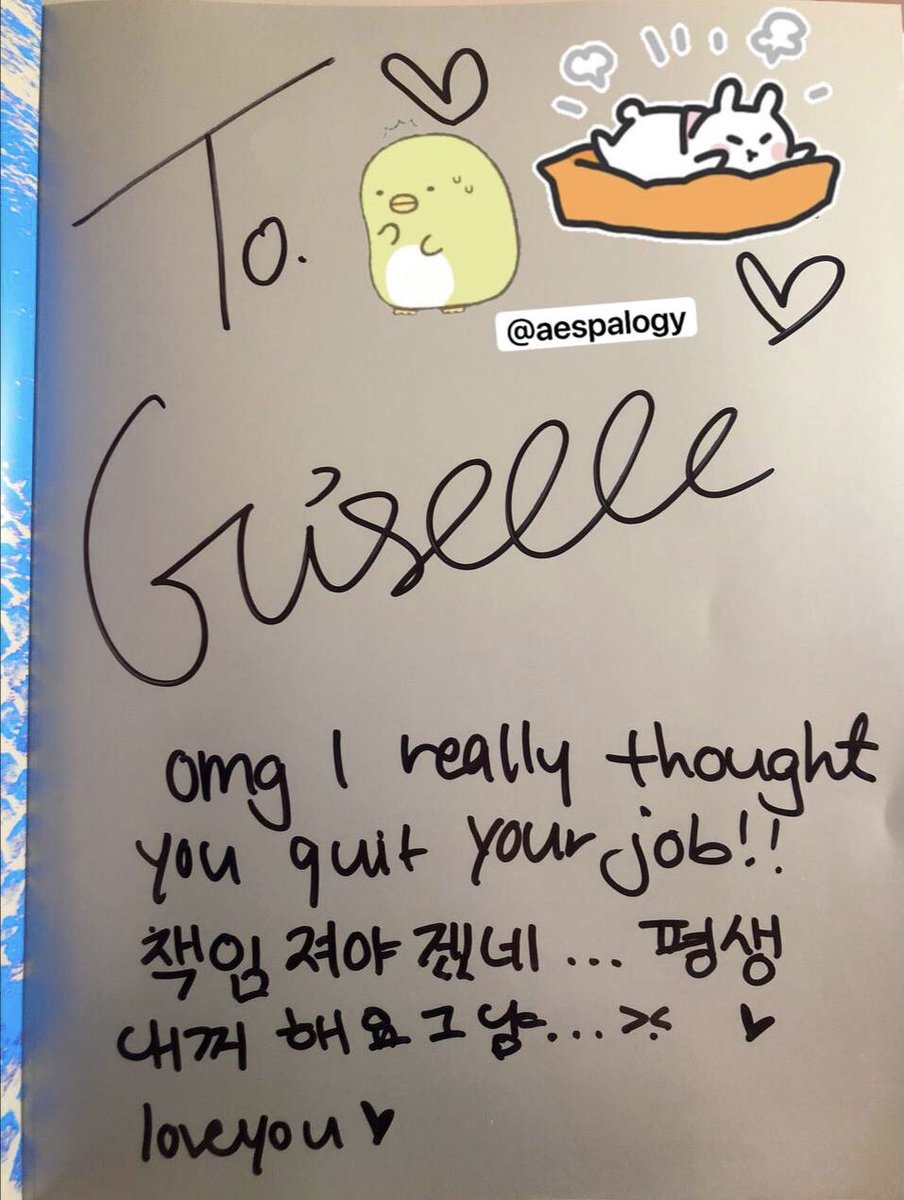 To.
@aespalogy
Giselle
omg I really thought
you quit your job!!
책임 져야 겠네... 평생
내꺼 해요 그냥... ><
love you